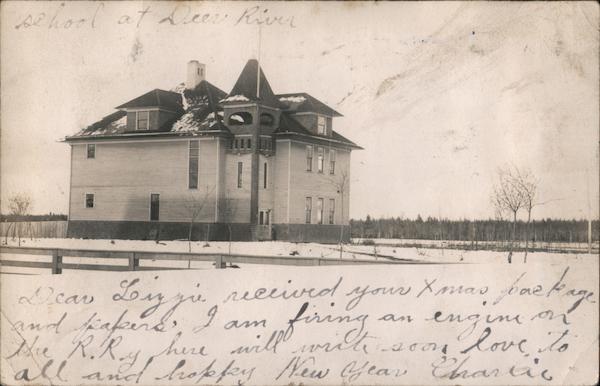 school at Deer River
Dear Lizzie received your Xmas package
and papers. I am firing an engine on
the R.Ry here will write soon love to
all and happy New Year Charlie